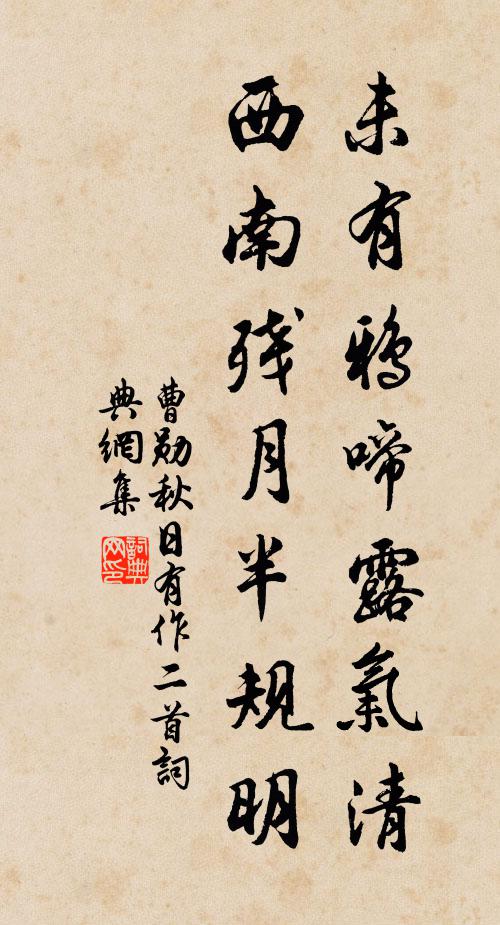 未有鴉啼露氣清
西南残月半規明
曹勛秋日有作二首詞
典網集
詞典
网印